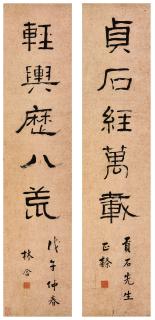 貞石經萬載
貢石先生
正隸
輕輿歷八荒
戊午仲春
林⼈